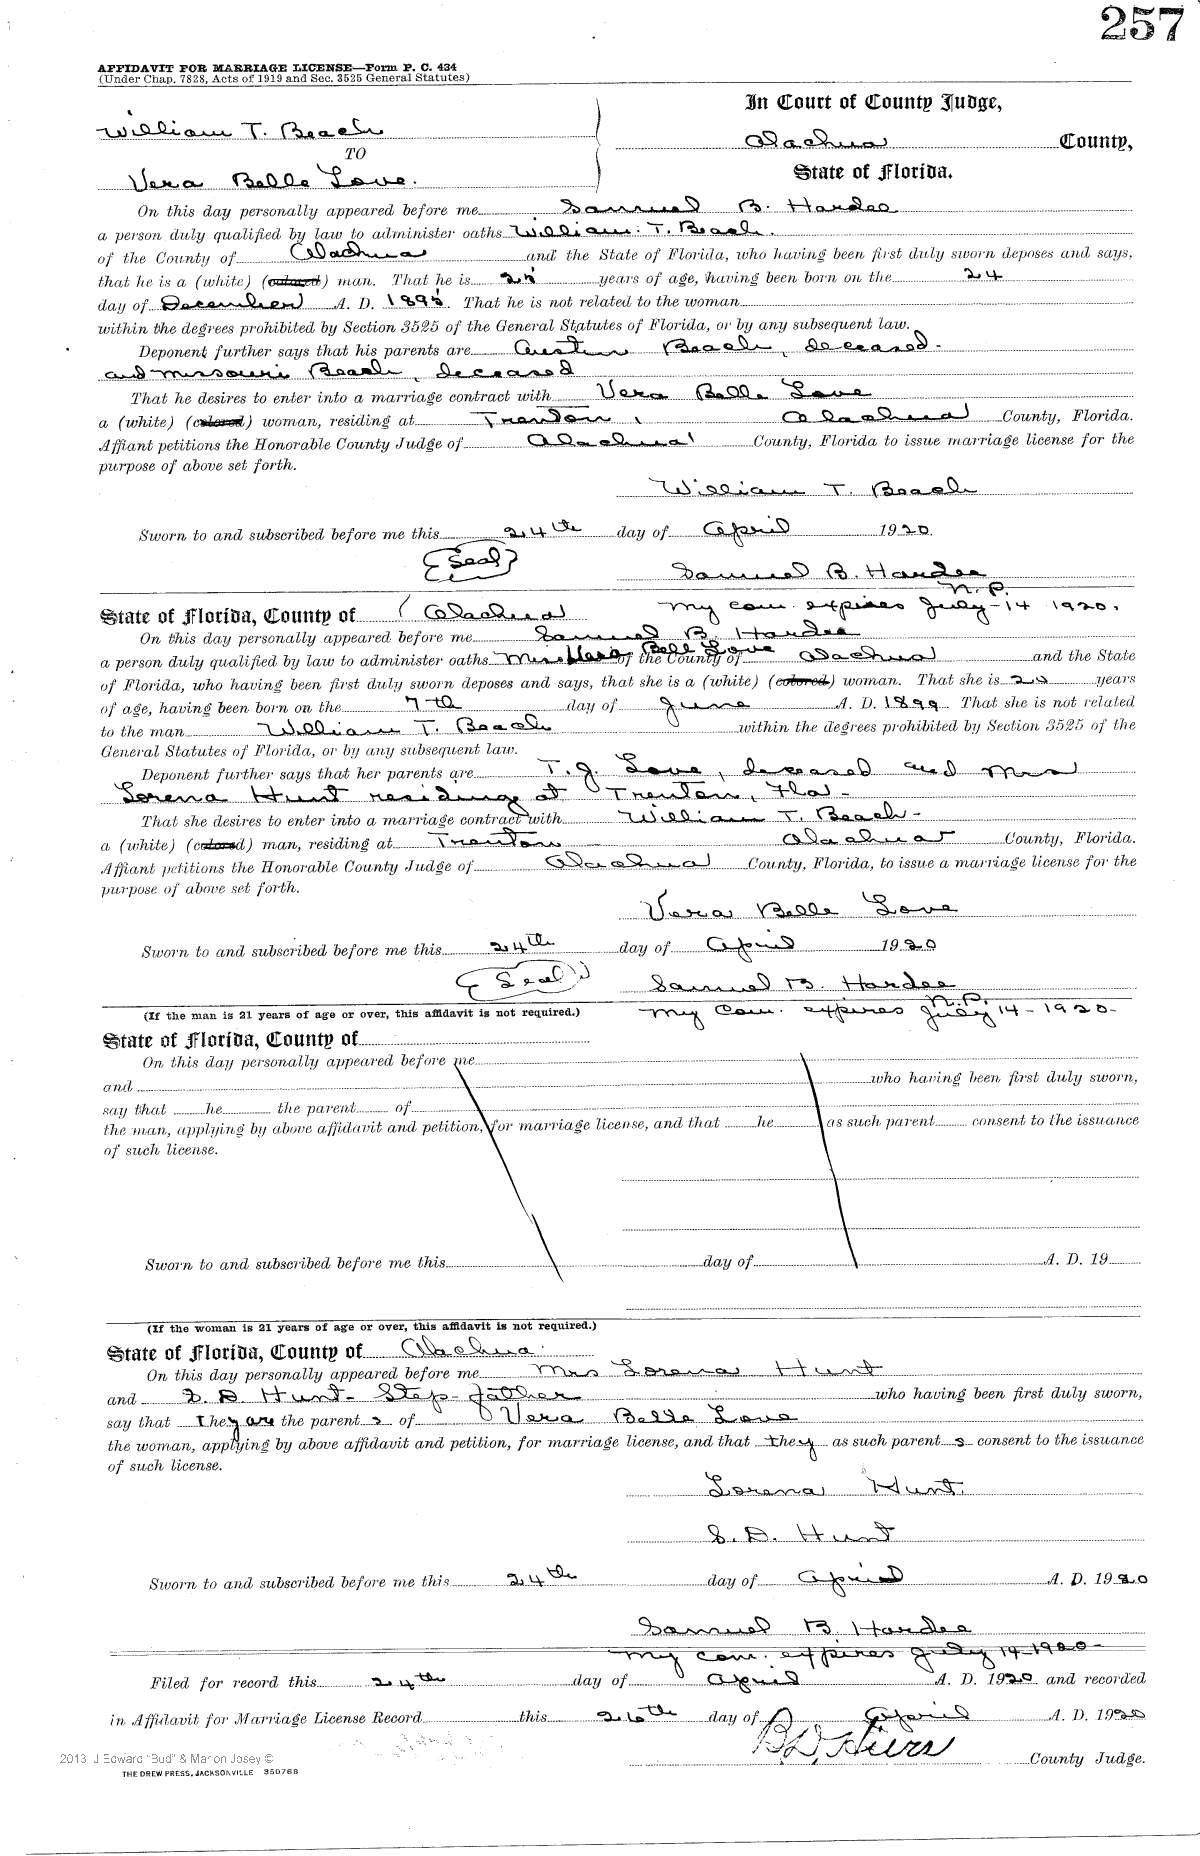 257
AFFIDAVIT FOR MARRIAGE LICENSE—Form P. C. 434
(Under Chap. 7828, Acts of 1919 and Sec. 3525 General Statutes)
In Court of County Judge,
William T. Beach
Alachua County,
TO
State of Florida.
Vera Belle Love.
On this day personally appeared before me Samuel B. Hardee
a person duly qualified by law to administer oaths William T. Beach.
of the County of Alachua and the State of Florida, who having been first duly sworn deposes and says,
that he is a (white) (colored) man. That he is 25 years of age, having been born on the 24
day of December A. D. 1895. That he is not related to the woman
within the degrees prohibited by Section 3525 of the General Statutes of Florida, or by any subsequent law.
Deponent further says that his parents are Austin Beach, deceased.
and Missouri Beach, deceased
That he desires to enter into a marriage contract with Vera Belle Love
a (white) (colored) woman, residing at Trenton, Alachua County, Florida.
Affiant petitions the Honorable County Judge of Alachua County, Florida to issue marriage license for the
purpose of above set forth.
William T. Beach
Sworn to and subscribed before me this 24th day of April 1920.
(Seal)
Samuel B. Hardee
N.P.
State of Florida, County of Alachua My com. expires July-14 1920.
On this day personally appeared before me Samuel B. Hardee
a person duly qualified by law to administer oaths Miss Vera Bell Love of the County of Alachua and the State
of Florida, who having been first duly sworn deposes and says, that she is a (white) (colored) woman. That she is 20 years
of age, having been born on the 7th day of June A. D. 1899 That she is not related
to the man William T. Beach within the degrees prohibited by Section 3525 of the
General Statutes of Florida, or by any subsequent law.
Deponent further says that her parents are T. J. Love, deceased and Mrs
Lorena Hunt residing at Trenton, Fla-
That she desires to enter into a marriage contract with William T. Beach-
a (white) (colored) man, residing at Trenton Alachua County, Florida.
Affiant petitions the Honorable County Judge of Alachua County, Florida, to issue a marriage license for the
purpose of above set forth.
Vera Belle Love
Sworn to and subscribed before me this 24th day of April 1920
(Seal)
Samuel B. Hardee
N.P.
(If the man is 21 years of age or over, this affidavit is not required.) My Com. expires July 14-1920-
State of Florida, County of
On this day personally appeared before me
and who having been first duly sworn,
say that he the parent of
the man, applying by above affidavit and petition, for marriage license, and that he as such parent consent to the issuance
of such license.
Sworn to and subscribed before me this day of A. D. 19
(If the woman is 21 years of age or over, this affidavit is not required.)
State of Florida, County of Alachua.
On this day personally appeared before me Mrs Lorena Hunt
and S. D. Hunt- Step-father who having been first duly sworn,
say that They are the parent s of Vera Belle Love
the woman, applying by above affidavit and petition, for marriage license, and that they as such parent s consent to the issuance
of such license.
Lorena Hunt.
S. D. Hunt
Sworn to and subscribed before me this 24th day of April A. D. 1920
Samuel B. Hardee
My com. expires July 14-1920-
Filed for record this 24th day of April A. D. 1920 and recorded
in Affidavit for Marriage License Record this 26th day of April A. D. 1920
B.D. Hiers County Judge.
2013 J Edward "Bud" & Marion Josey ©
THE DREW PRESS, JACKSONVILLE 350768